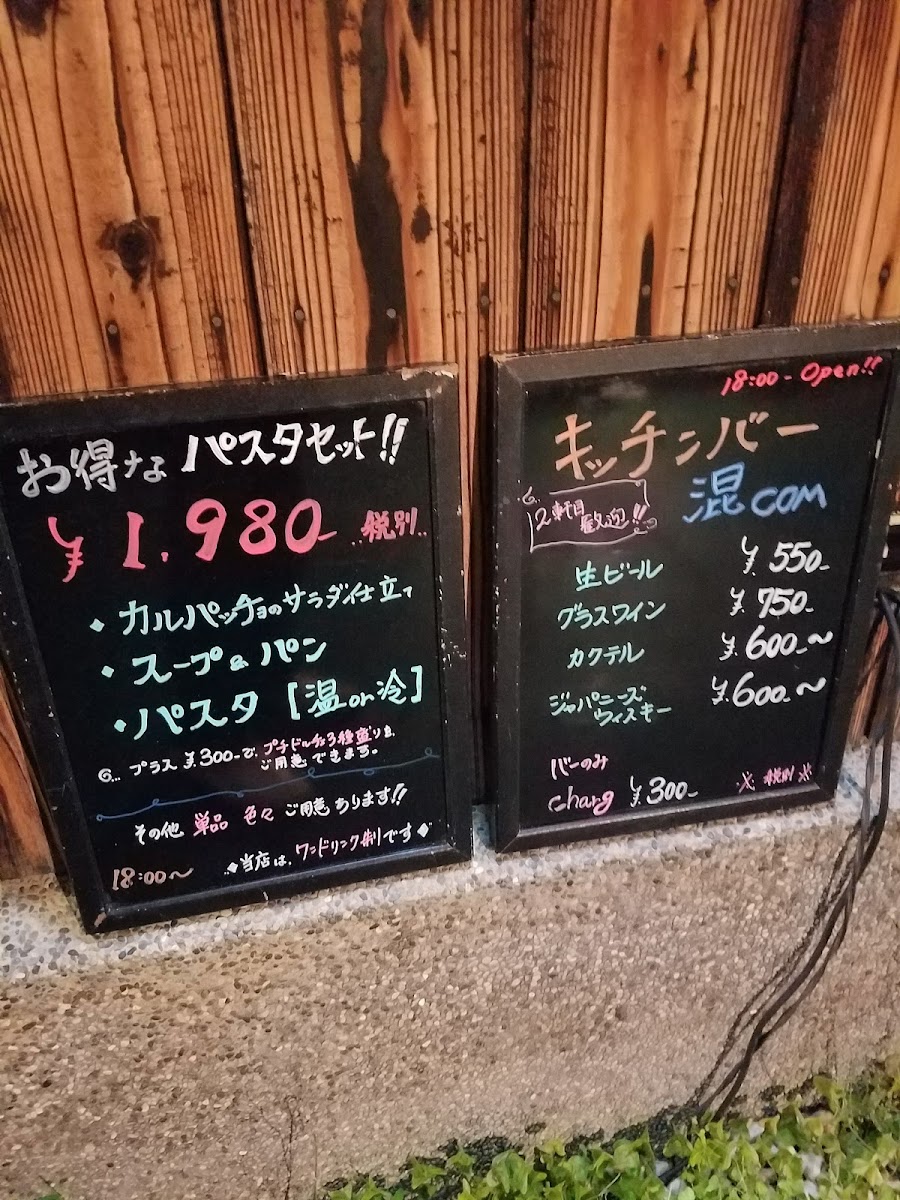 お得な パスタセット!!
¥1,980- 税別..
・カルパッチョのサラダ仕立て
・スープ & パン
・パスタ [温 or 冷]
プラス ¥300-で、プチドルチェ3種盛りも
ご用意できます。
その他 単品 色々 ご用意 あります!!
18:00〜 当店は、ワンドリンク制です
18:00 - Open!!
キッチンバー
混 COM
2軒目
歓迎!!
生ビール ¥550-
グラスワイン ¥750-
カクテル ¥600-〜
ジャパニーズ
ウィスキー ¥600-〜
バーのみ
charg ¥300- ※ 税別 ※